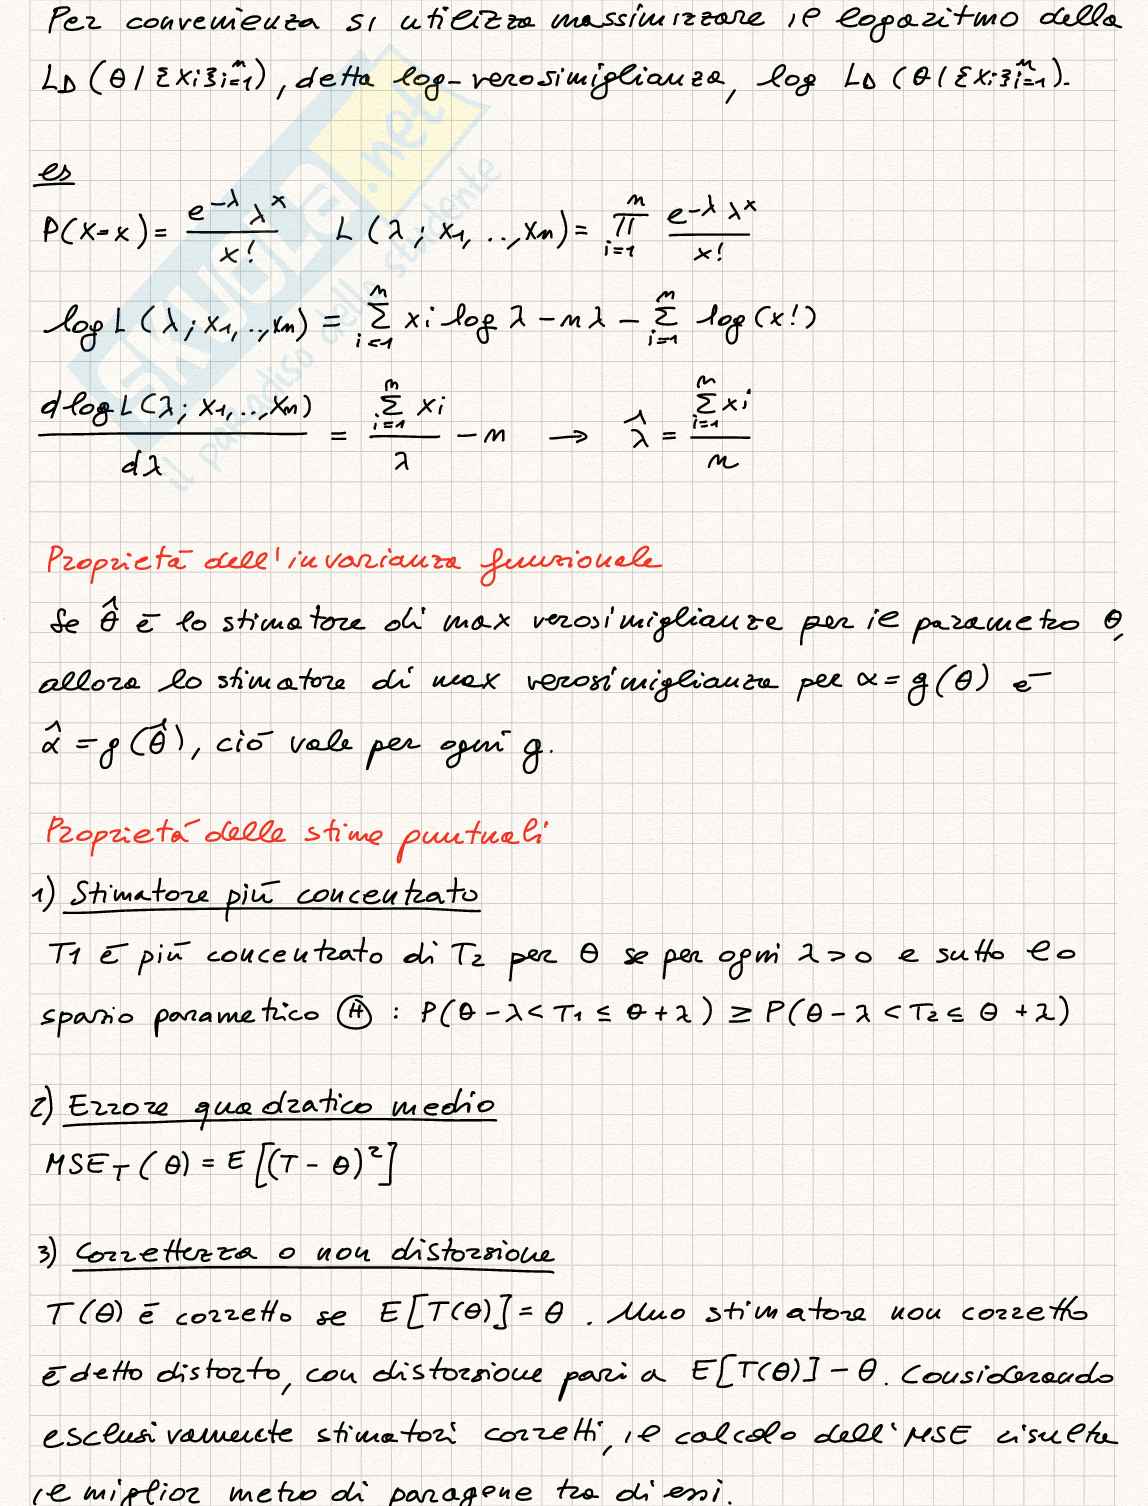 Per convenienza si utilizza massimizzare il logaritmo della
L_D (θ | {xi}_{i=1}^n), detta log-verosimiglianza, log L_D (θ | {xi}_{i=1}^n).
es
P(X=x) = \frac{e^{-λ} λ^x}{x!}   L (λ; x_1, .., x_n) = \prod_{i=1}^{n} \frac{e^{-λ} λ^x}{x!}
log L (λ; x_1, .., x_n) = \sum_{i=1}^{n} xi log λ - nλ - \sum_{i=1}^{n} log(x!)
\frac{d log L(λ; x_1, .., x_n)}{dλ} = \frac{\sum_{i=1}^{n} xi}{λ} - n → \hat{λ} = \frac{\sum_{i=1}^{n} xi}{n}
Proprietà dell'invarianza funzionale
Se \hat{θ} è lo stimatore di max verosimiglianza per il parametro θ,
allora lo stimatore di max verosimiglianza per α = g(θ) è
\hat{α} = g(\hat{θ}), ciò vale per ogni g.
Proprietà delle stime puntuali
1) Stimatore più concentrato
T1 è più concentrato di T2 per θ se per ogni λ>0 e su tutto lo
spazio parametrico Ⓗ : P(θ-λ < T1 ≤ θ+λ) ≥ P(θ-λ < T2 ≤ θ+λ)
2) Errore quadratico medio
MSE_T (θ) = E[(T-θ)^2]
3) Correttezza o non distorsione
T(θ) è corretto se E[T(θ)] = θ. Uno stimatore non corretto
è detto distorto, con distorsione pari a E[T(θ)] - θ. Considerando
esclusivamente stimatori corretti, il calcolo dell'MSE risulta
il miglior metro di paragone tra di essi.
SKUOLA.net
il paradiso dello studente